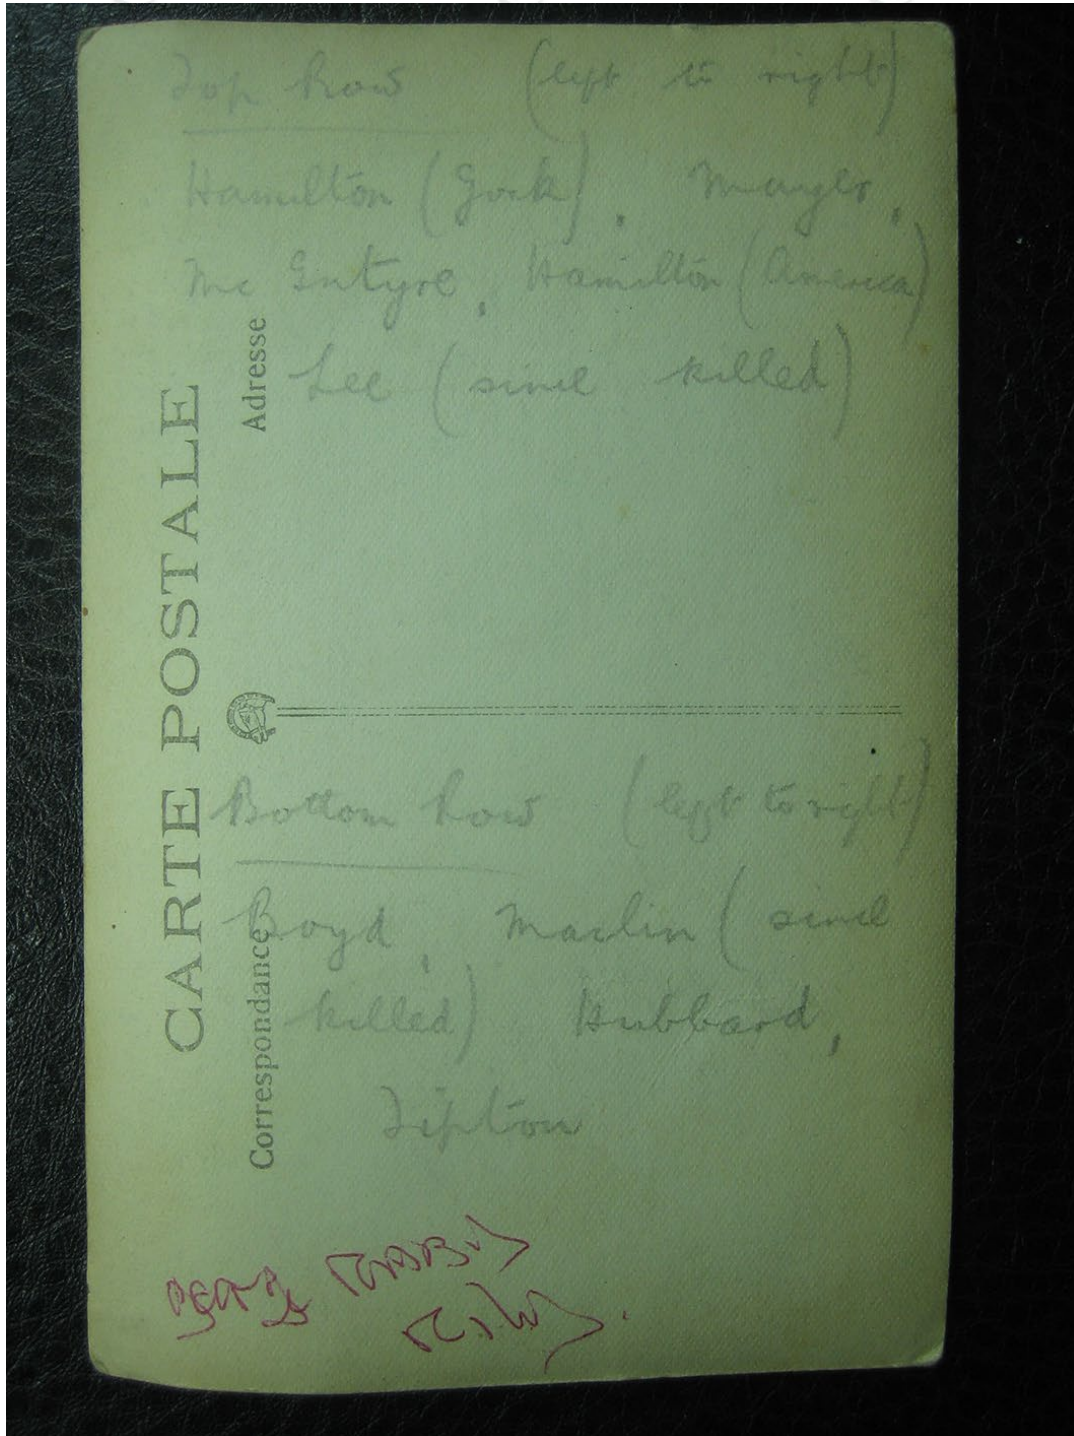 Top Row (left to right)
Hamilton (Jock), Mayes,
Mc Intyre, Hamilton (America)
Lee (since killed)
CARTE POSTALE
Adresse
Correspondance
Bottom Row (left to right)
Boyd, Maclin (since
killed) Hubbard,
Tipton